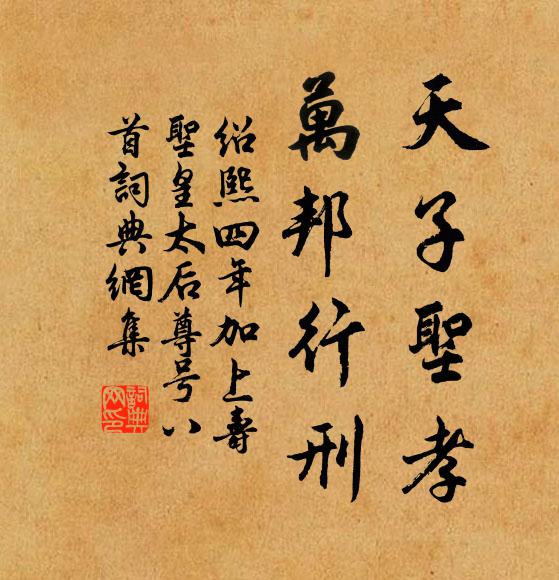 天子聖孝
萬邦行刑
紹熙四年加上壽
聖皇太后尊号八
首詞典網集
詞典
网印